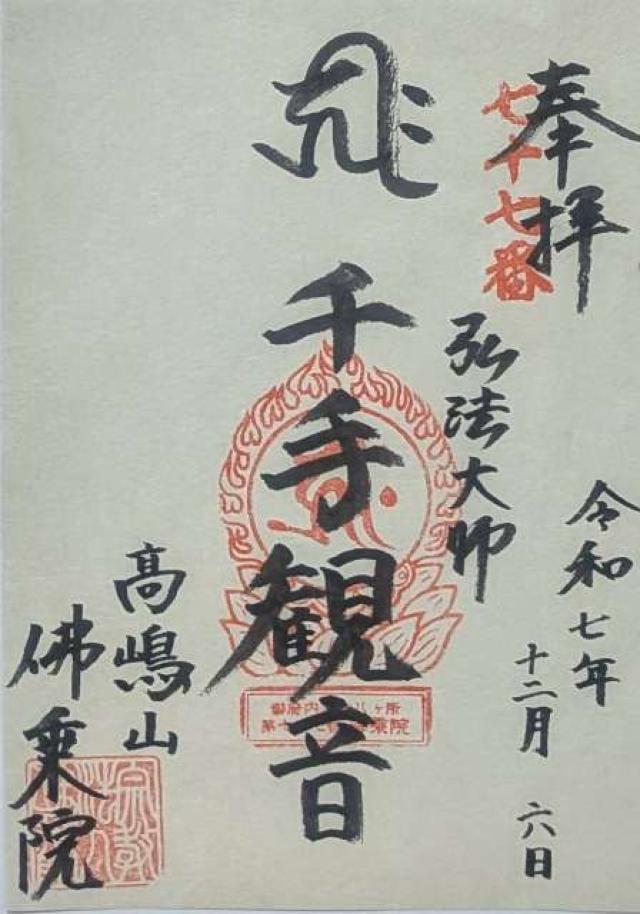 奉拝
七十七番
弘法大師
令和七年
十二月 六日
千手観音
高嶋山
佛乗院